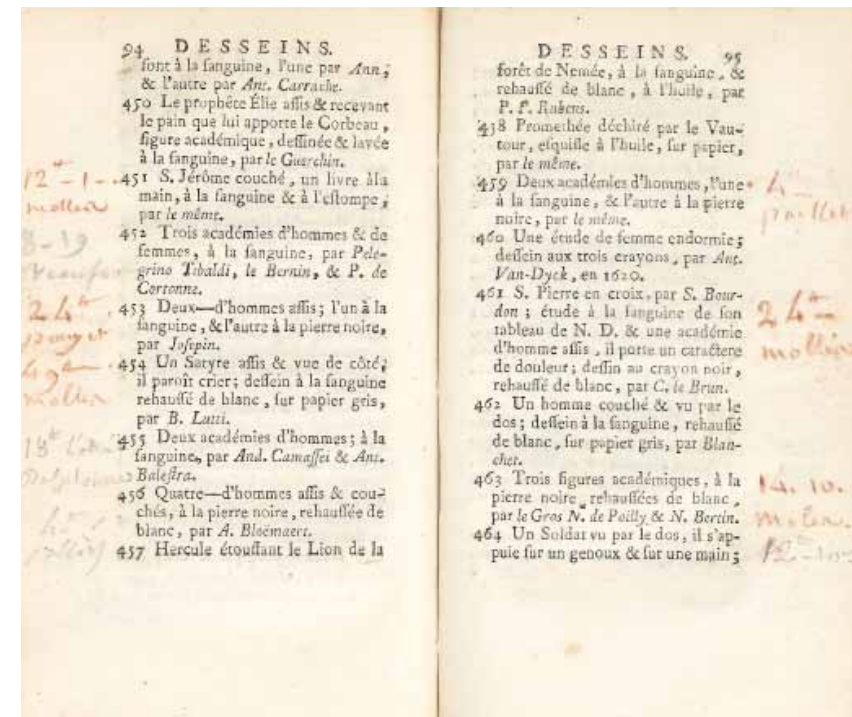 94 DESSEINS.
font à la ſanguine, l'une par Ann,
& l'autre par Ant. Carrache.
450 Le prophète Élie aſſis & recevant
le pain que lui apporte le Corbeau,
figure académique, deſſinée & lavée
à la ſanguine, par le Guerchin.
12 - 1 - 451 S. Jérôme couché, un livre àla
main, à la ſanguine & à l'eſtompe,
par le même.
452 Trois académies d'hommes & de
femmes, à la ſanguine, par Pele-
grino Tibaldi, le Bernin, & P. de
Cortonne.
24 453 Deux—d'hommes aſſis; l'un à la
ſanguine, & l'autre à la pierre noire,
par Joſepin.
454 Un Satyre aſſis & vue de côté;
il paroît crier; deſſein à la ſanguine
rehauſſé de blanc, ſur papier gris,
par B. Lutti.
455 Deux académies d'hommes; à la
ſanguine, par And. Camaſſei & Ant.
Baleſtra.
456 Quatre—d'hommes aſſis & cou-
chés, à la pierre noire, rehauſſée de
blanc, par A. Bloëmaert.
457 Hercule étouffant le Lion de la
DESSEINS. 95
forêt de Nemée, à la ſanguine, &
rehauſſé de blanc, à l'huile, par
P. P. Rubens.
458 Promethée déchiré par le Vau-
tour, eſquiſſe à l'huile, ſur papier,
par le même.
459 Deux académies d'hommes, l'une
à la ſanguine, & l'autre à la pierre
noire, par le même.
460 Une étude de femme endormie;
deſſein aux trois crayons, par Ant.
Van-Dyck, en 1620.
461 S. Pierre en croix, par S. Bour-
don; étude à la ſanguine de ſon
tableau de N. D. & une académie
d'homme aſſis, il porte un caractere
de douleur; deſſin au crayon noir,
rehauſſé de blanc, par C. le Brun.
24
462 Un homme couché & vu par le
dos; deſſein à la ſanguine, rehauſſé
de blanc, ſur papier gris, par Blan-
chet.
463 Trois figures académiques, à la
pierre noire, rehauſſées de blanc,
par le Gros N. de Poilly & N. Bertin.
14. 10.
464 Un Soldat vu par le dos, il s'ap-
puie ſur un genoux & ſur une main;